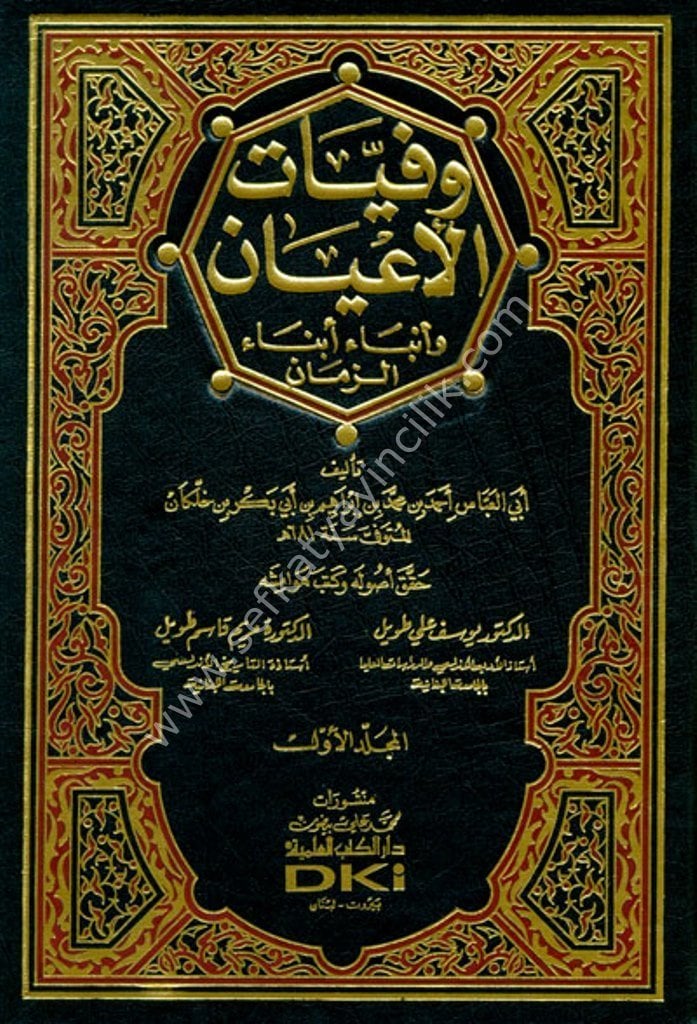 وفيّات
الأعيان
وأنباء أبناء
الزمان
تأليف
أبي العبّاس أحمد بن محمّد بن إبراهيم بن أبي بكر بن خلّكان
المتوفّى سنة ٦٨١هـ
حقّق أصوله وكتب هوامشه
الدكتور يوسف علي طويل
الدكتورة مريم قاسم طويل
أستاذ الأدب الأندلسي والدراسات العليا
بالجامعة اللبنانية
أستاذة التاريخ الأندلسي
بالجامعة اللبنانية
المجلّد الأول
منشورات
محمد علي بيضون
دار الكتب العلمية
DKi
بيروت - لبنان
www.sefkatyayincilik.com